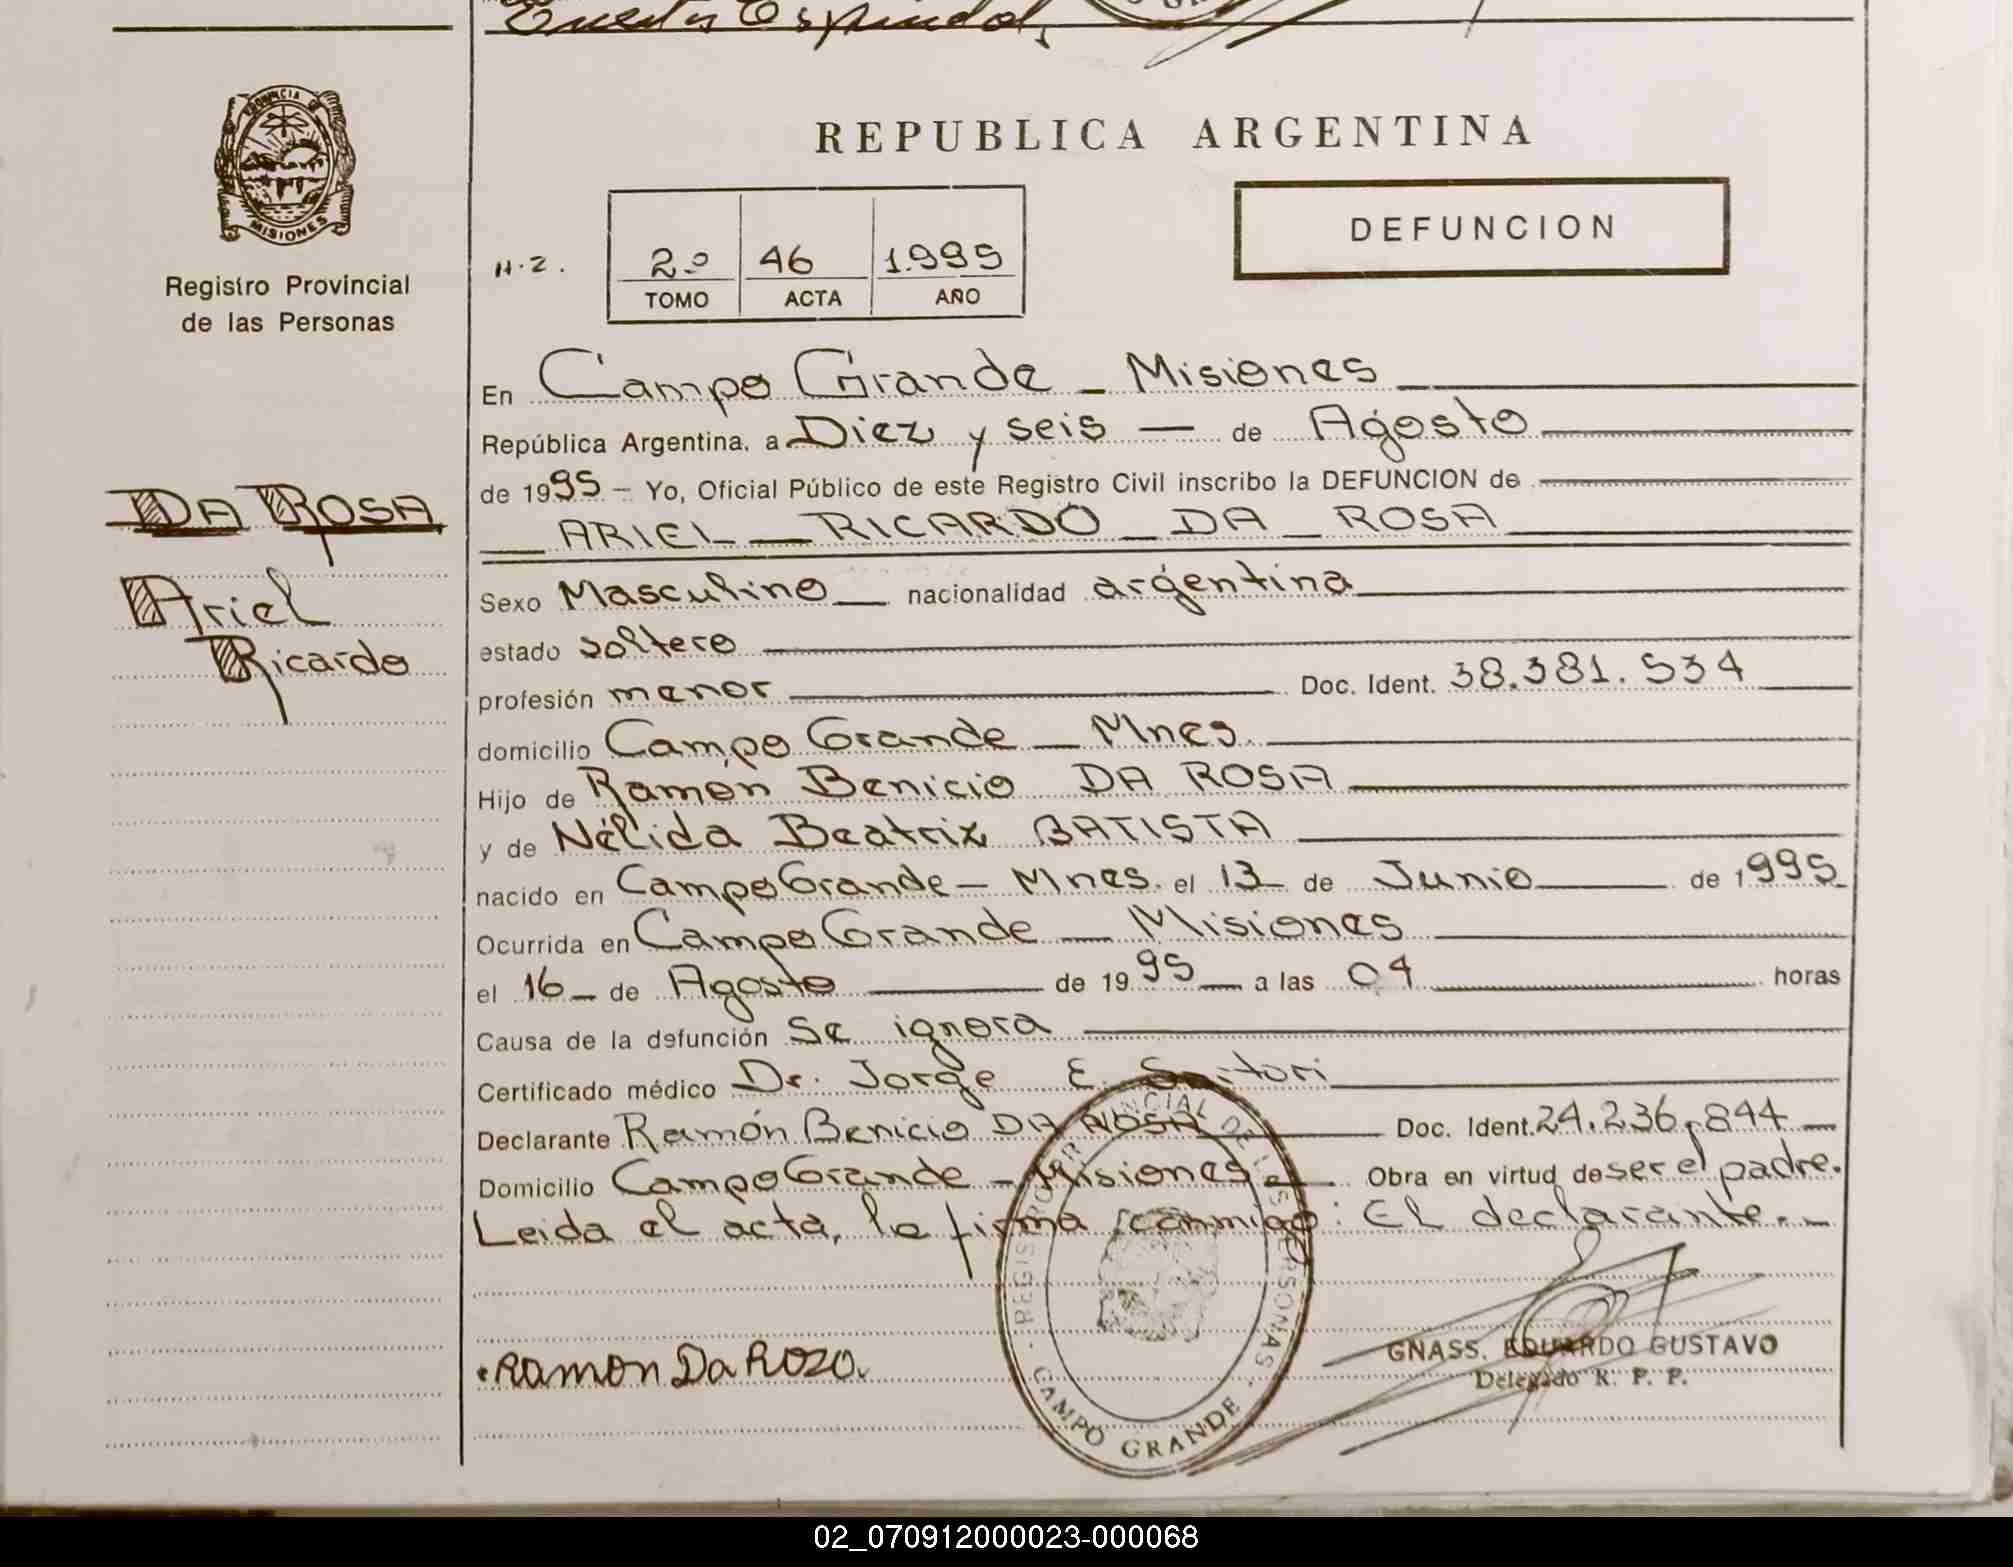 Ernesto Espindola
REPUBLICA ARGENTINA
PROVINCIA DE
MISIONES
Registro Provincial
de las Personas
N.Z.
2º 46 1.995
TOMO ACTA AÑO
DEFUNCION
DA ROSA
Ariel
Ricardo
En Campo Grande _ Misiones
República Argentina, a Diez y seis — de Agosto
de 1995 – Yo, Oficial Público de este Registro Civil inscribo la DEFUNCION de
ARIEL _ RICARDO _ DA _ ROSA
Sexo Masculino nacionalidad argentina
estado soltero
profesión menor Doc. Ident. 38.381.534
domicilio Campo Grande _ Mnes.
Hijo de Ramón Benicio DA ROSA
y de Nélida Beatriz BATISTA
nacido en Campo Grande – Mnes. el 13 de Junio de 1995
Ocurrida en Campo Grande — Misiones
el 16 _ de Agosto de 1995 a las 04 horas
Causa de la defunción Se ignora
Certificado médico Dr. Jorge E. Sartori
Declarante Ramón Benicio DA ROSA Doc. Ident. 24.236.844
Domicilio Campo Grande – Misiones Obra en virtud de ser el padre.
Leida el acta, la firma conmigo: El declarante. _
RAMON Da ROZA
REGISTRO PROVINCIAL DE LAS PERSONAS
CAMPO GRANDE
GNASS, EDUARDO GUSTAVO
Delegado R. P. P.
02_070912000023-000068